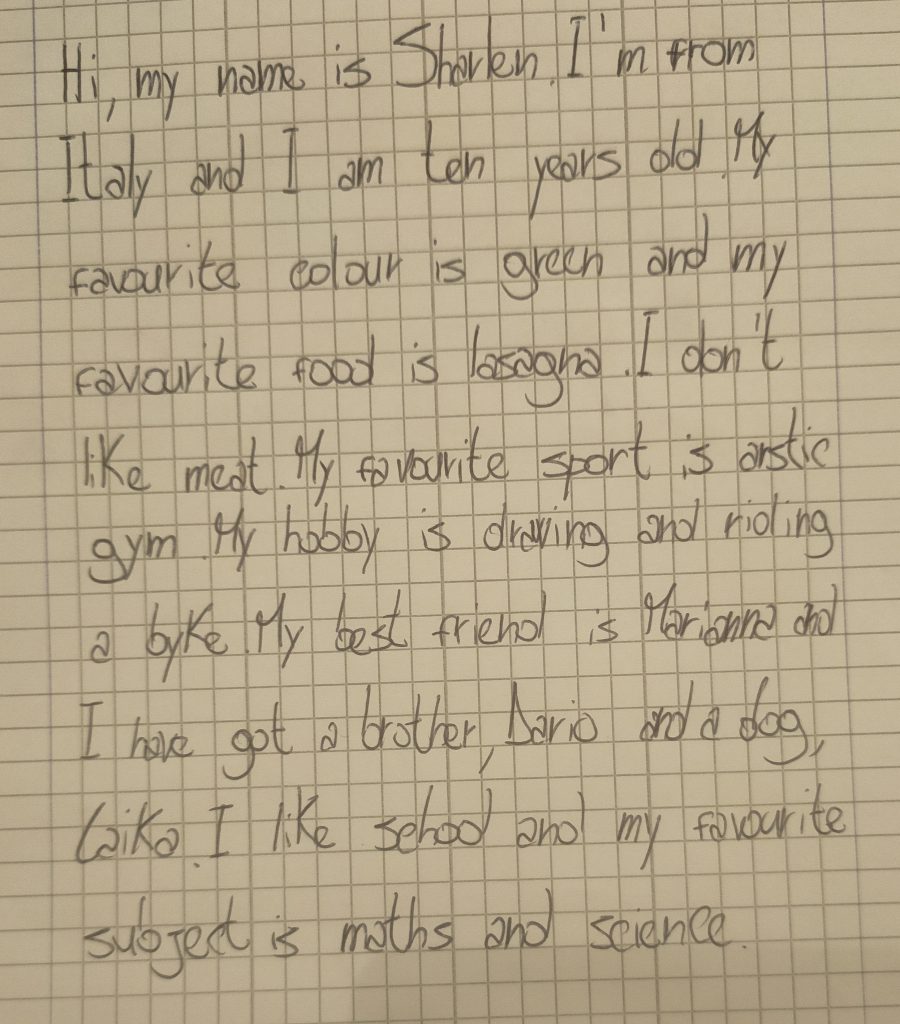 Hi, my name is Sharlen. I'm from
Italy and I am ten years old. My
favourite colour is green and my
favourite food is lasagna. I don't
like meat. My favourite sport is arstic
gym. My hobby is drawing and riding
a byke. My best friend is Marianna and
I have got a brother, Dario and a dog,
Laika. I like school and my favourite
subject is maths and science.